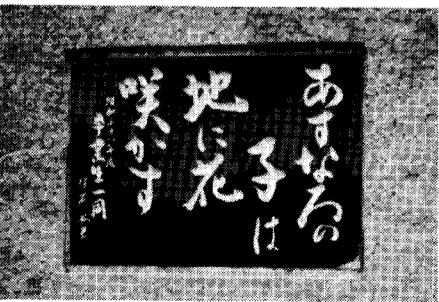 あすなろの
子は
地に花
咲かす
卒業生一同